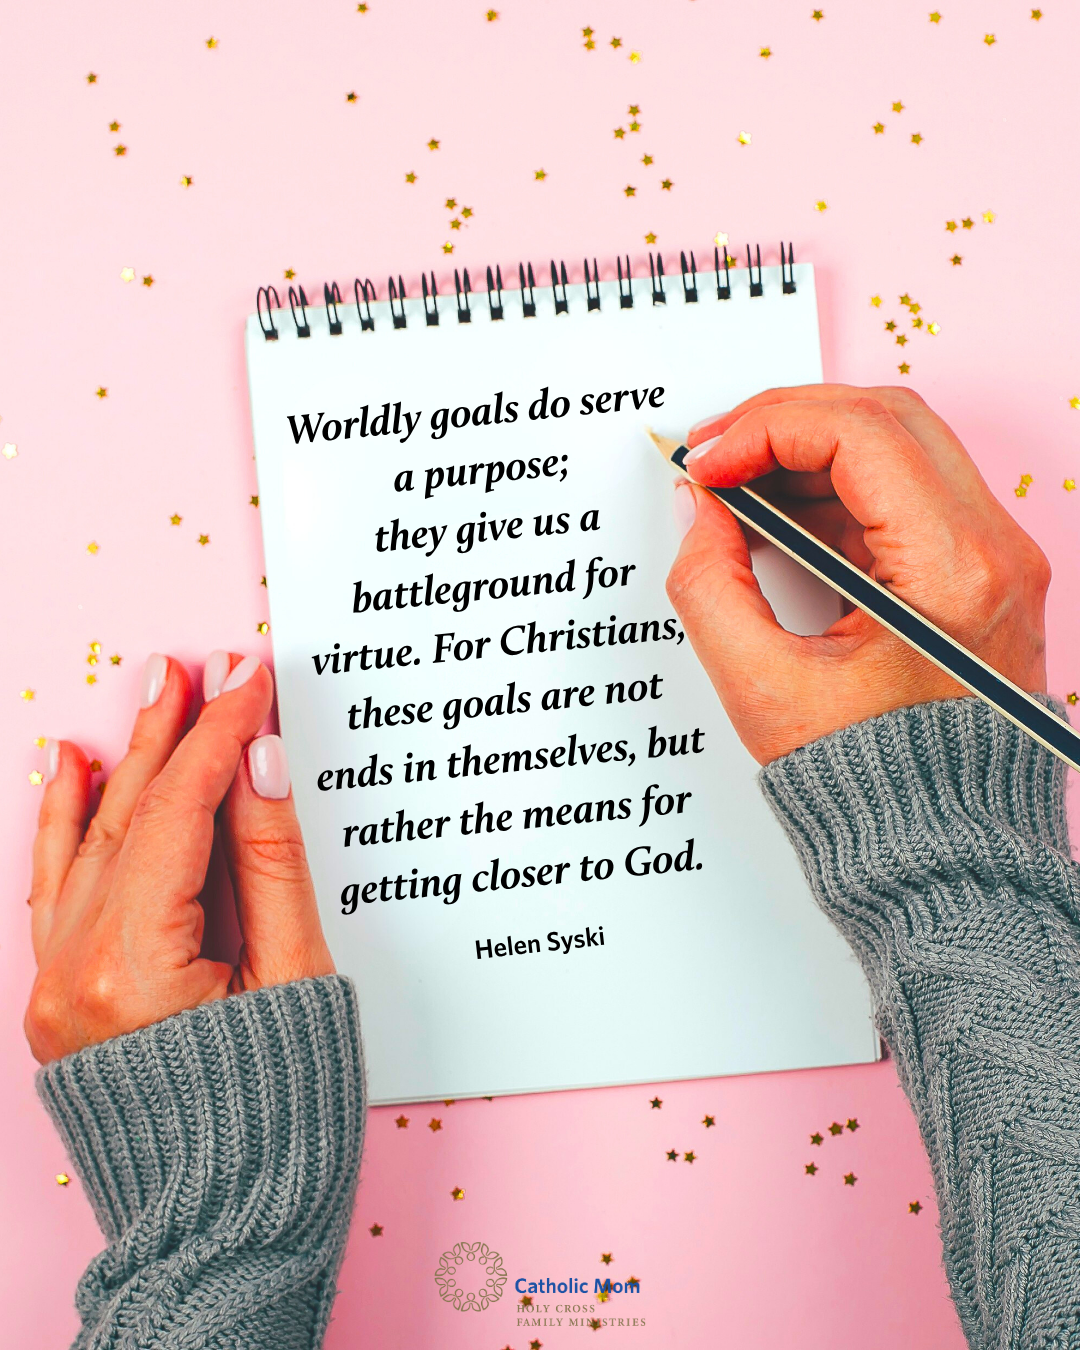 Worldly goals do serve
a purpose;
they give us a
battleground for
virtue. For Christians,
these goals are not
ends in themselves, but
rather the means for
getting closer to God.
Helen Syski
Catholic Mom
HOLY CROSS
FAMILY MINISTRIES